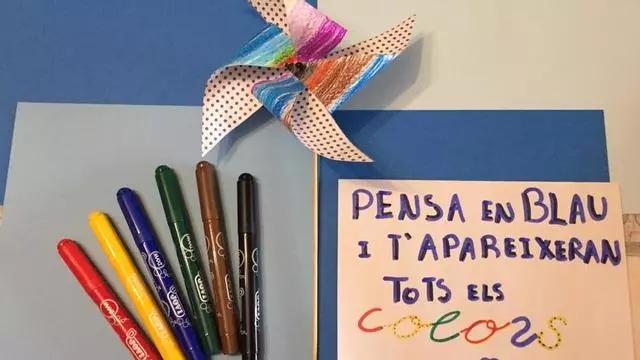 PENSA EN BLAU
I T'APAREIXERAN
TOTS ELS
COLORS